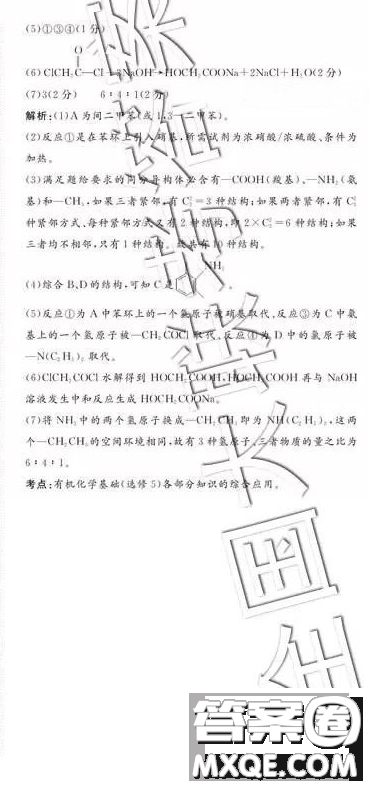 (5)①③④(1分)
O
(6)ClCH₂C—Cl+3NaOH→HOCH₂COONa+2NaCl+H₂O(2分)
(7)3(2分) 6∶4∶1(2分)
解析:(1)A为间二甲苯(或1,3-二甲苯)。
(2)反应①是在苯环上引入硝基,所需试剂为浓硝酸/浓硫酸、条件为
加热。
(3)满足题给要求的同分异构体必含有—COOH(羧基)、—NH₂(氨
基)和—CH₃,如果三者紧邻,有C¹₃=3种结构;如果两者紧邻,有C²₃
种紧邻方式、每种紧邻方式又有2种结构,即2×C²₃=6种结构;如果
三者均不相邻,只有1种结构。故共有10种结构。
NH₂
(4)综合B、D的结构,可知C是
(5)反应①为A中苯环上的一个氢原子被硝基取代、反应③为C中氨
基上的一个氢原子被—CH₂COCl取代、反应④为D中的氯原子被
—N(C₂H₅)₂取代。
(6)ClCH₂COCl水解得到HOCH₂COOH,HOCH₂COOH再与NaOH
溶液发生中和反应生成HOCH₂COONa。
(7)将NH₃中的两个氢原子换成—CH₂CH₃即为NH(C₂H₅)₂,这两
个—CH₂CH₃的空间环境相同,故有3种氢原子,三者物质的量之比为
6∶4∶1。
考点:有机化学基础(选修5)各部分知识的综合应用。
答案圈
MXQE.COM